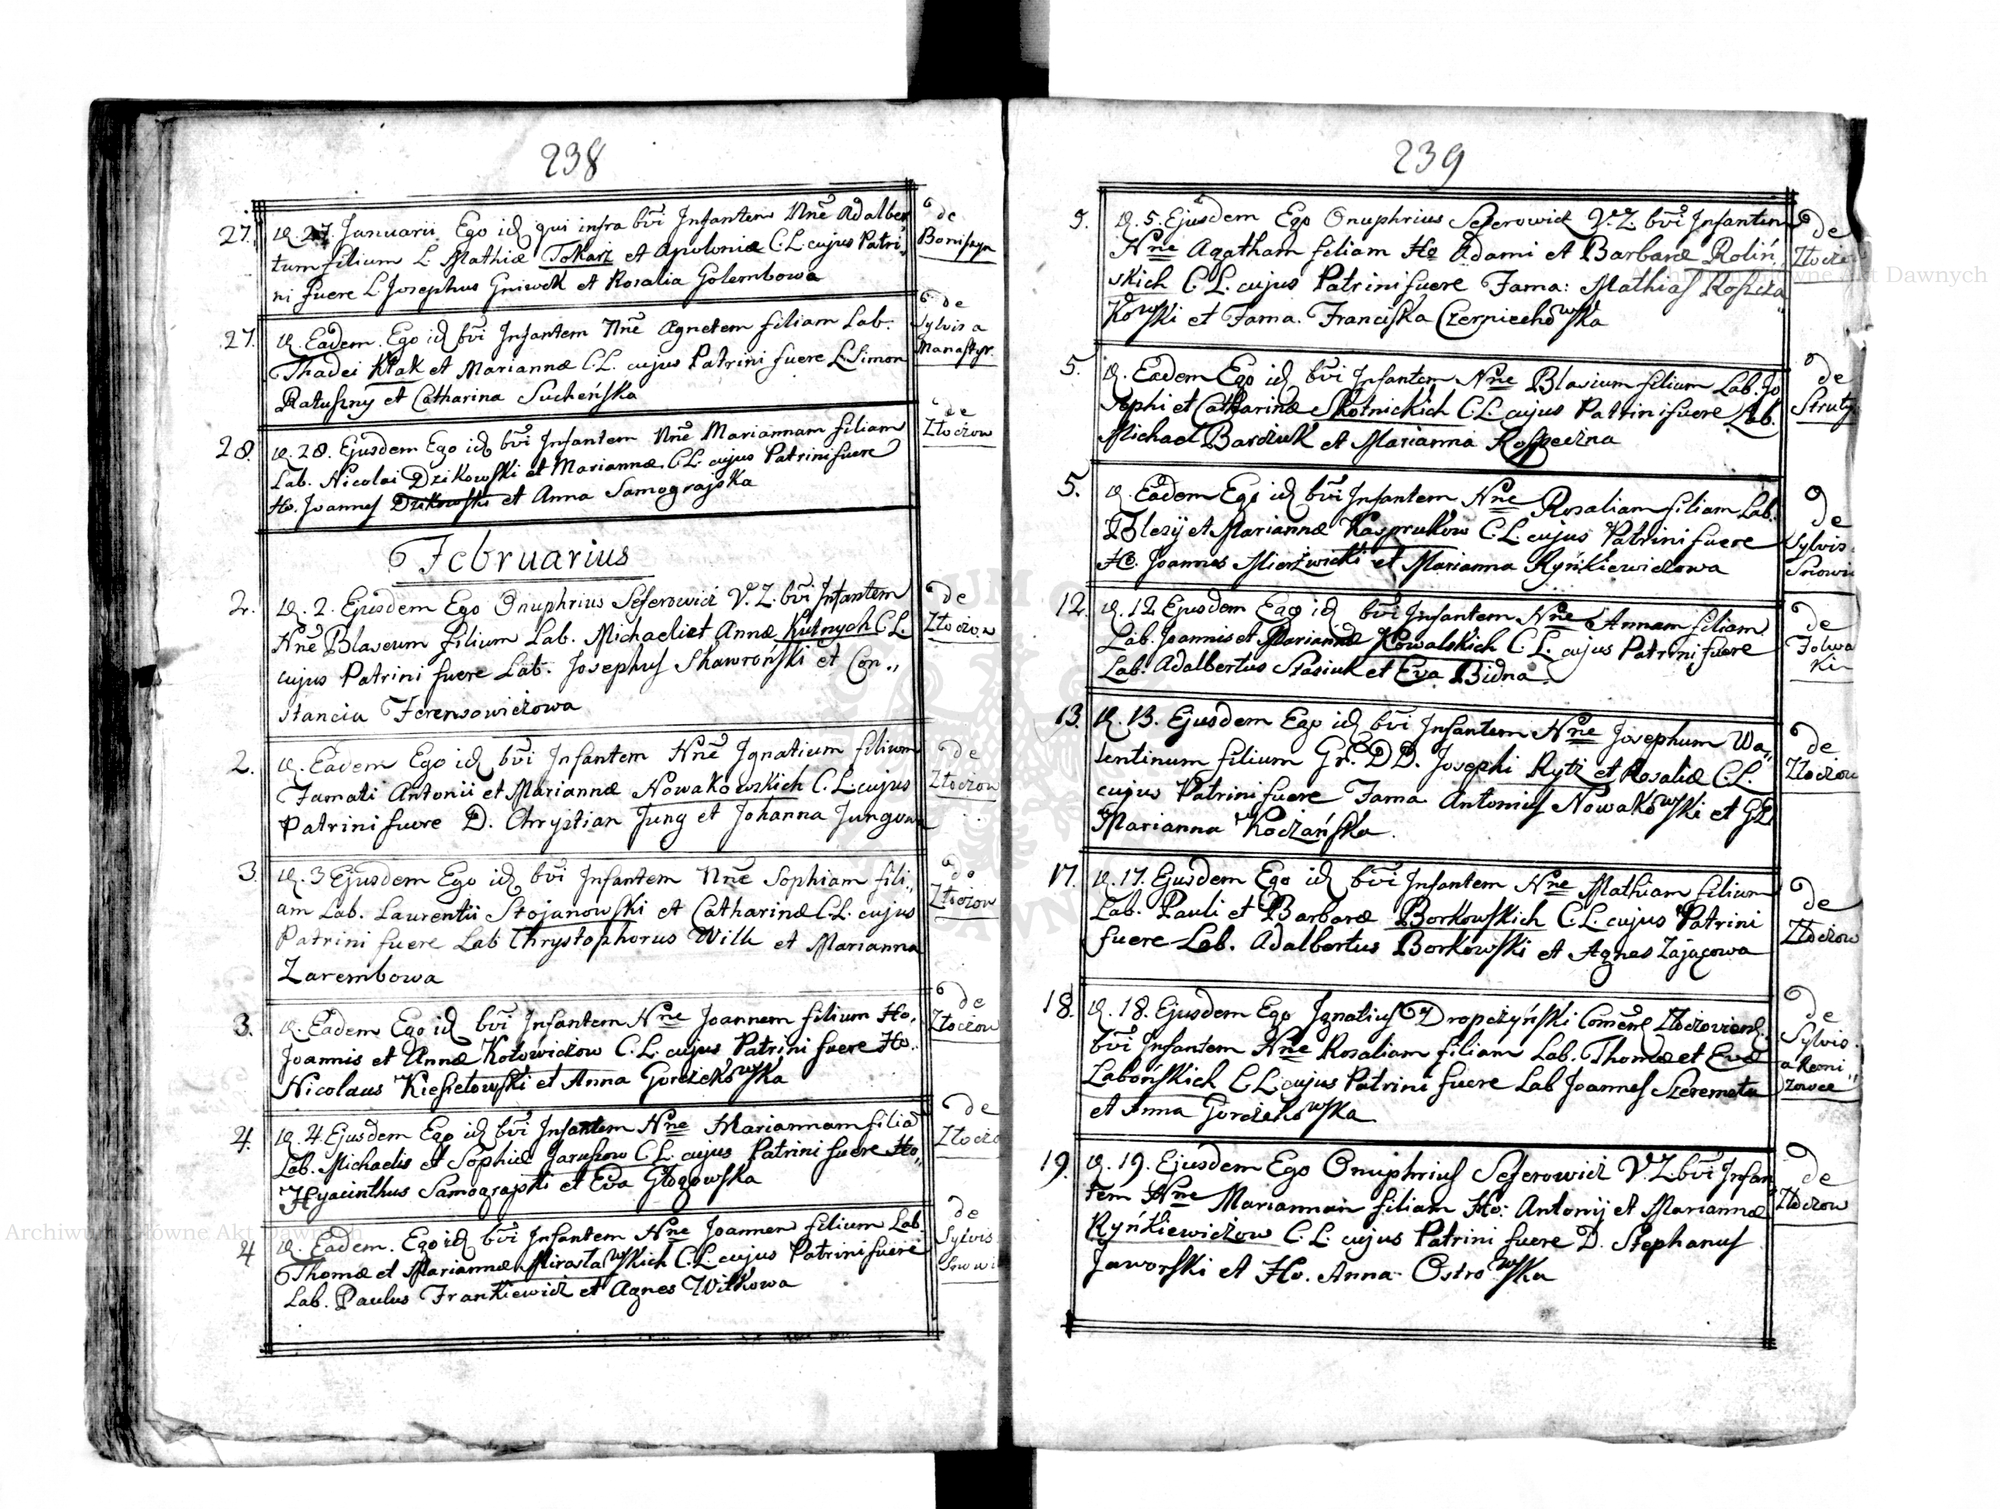 238
27. d. 27. Januarii Ego id qui infra bvi Infantem Nne Adalber
tum filium L. Mathiæ Tokarz et Apoloniæ C.L. cujus Patri-
ni fuere L. Josephus Gniwek et Rosalia Golembowa
de
Bonifaya
27. d. Eadem. Ego id bvi Infantem Nne Agnetem filiam Lab.
Thadei Ktak et Mariannæ C.L. cujus Patrini fuere L. Simon
Ratuszny et Catharina Sucheńska
de
Sylvis a
Manastyr.
28. d. 28. Ejusdem Ego id bvi Infantem Nne Mariannam filiam
Lab. Nicolai Dzikowski et Mariannæ C.L. cujus Patrini fuere
Ho. Joannes Dzikowski et Anna Samograjska
de
Złoczow
Februarius
2. d. 2. Ejusdem Ego Onuphrius Seferowicz V.Z. bvi Infantem
Nne Blaseum filium Lab. Michaeli et Annæ Kutnych C.L.
cujus Patrini fuere Lab. Josephus Skawroński et Con-
stancia Ferensowiczowa
de
Złoczow
2. d. Eadem Ego id bvi Infantem Nne Ignatium filium
Famati Antonii et Mariannæ Nowakowskich C.L. cujus
Patrini fuere D. Chrystian Jung et Johanna Jungowa
de
Złoczow
3. d. 3 Ejusdem Ego id bvi Infantem Nne Sophiam fili-
am Lab. Laurentii Stojanowski et Catharinæ C.L. cujus
Patrini fuere Lab Chrystophorus Wilk et Marianna
Zarembowa
de
Złoczow
3. d. Eadem Ego id bvi Infantem Nne Joannem filium Ho.
Joannis et Annæ Kołowiczow C.L. cujus Patrini fuere Ho.
Nicolaus Kiesielowski et Anna Gorczkowska
de
Złoczow
4. d. 4 Ejusdem Ego id bvi Infantem Nne Mariannam filia
Lab. Michaelis et Sophiæ Jaruszow C.L. cujus Patrini fuere Ho.
Hyacinthus Samograjski et Eva Głogowska
de
Złoczo
4 d. Eadem. Ego id bvi Infantem Nne Joannem filium Lab.
Thomæ et Mariannæ Mirosławskich C.L. cujus Patrini fuere
Lab. Paulus Frankiewicz et Agnes Wilkowa
de
Sylvis
239
5. d. 5. Ejusdem Ego Onuphrius Seferowicz V.Z. bvi Infantem
Nne Agatham filiam Ho Adami et Barbaræ Roliń-
skich C.L. cujus Patrini fuere Fama: Mathias Roszcza
kowski et Fama. Franciska Czerniechowska
de
Złocze
5. d. Eadem Ego id bvi Infantem Nne Blasium filium Lab. Jo
sephi et Catharinæ Skotnickich C.L. cujus Patrini fuere Lab.
Michael Bardziuk et Marianna Rospeczna
de
Struty
5. d. Eadem Ego id bvi Infantem Nne Rosaliam filiam Lab.
Blesij et Mariannæ Kasprukow C.L. cujus Patrini fuere
Ho. Joannes Mierzwicki et Marianna Ryńkiewiczowa
de
Sylvis
Snowi
12. d. 12 Ejusdem Ego id bvi Infantem Nne Annam filiam
Lab. Joannis et Mariannæ Kowalskich C.L. cujus Patrini fuere
Lab. Adalbertus Stasiuk et Eva Bidna.
de
Folwa
rki
13. d. 13. Ejusdem Ego id bvi Infantem Nne Josephum Va-
lentinum filium Gr. DD. Josephi Rytz et Rosaliæ C.L.
cujus Patrini fuere Fama Antonius Nowakowski et
Marianna Koczańska.
de
Złoczow
17. d. 17. Ejusdem Ego id bvi Infantem Nne Mathiam filium
Lab. Pauli et Barbaræ Borkowskich C.L. cujus Patrini
fuere Lab. Adalbertus Borkowski et Agnes Zającowa
de
Złoczow
18. d. 18. Ejusdem Ego Ignatius Dropczyński Złoczoviens.
bvi Infantem Nne Rosaliam filiam Lab. Thomæ et Evæ
Labońskich C.L. cujus Patrini fuere Lab Joannes Szeremeta
et Anna Gorczkowska
de
Sylvis
19. d. 19. Ejusdem Ego Onuphrius Seferowicz V.Z. bvi Infan
tem Nne Mariannam filiam Ho: Antonij et Mariannæ
Ryńkiewiczow C.L. cujus Patrini fuere D. Stephanus
Jaworski et Ho. Anna Ostrowska
de
Złoczow
Archiwum Główne Akt Dawnych
Archiwum Główne Akt Dawnych